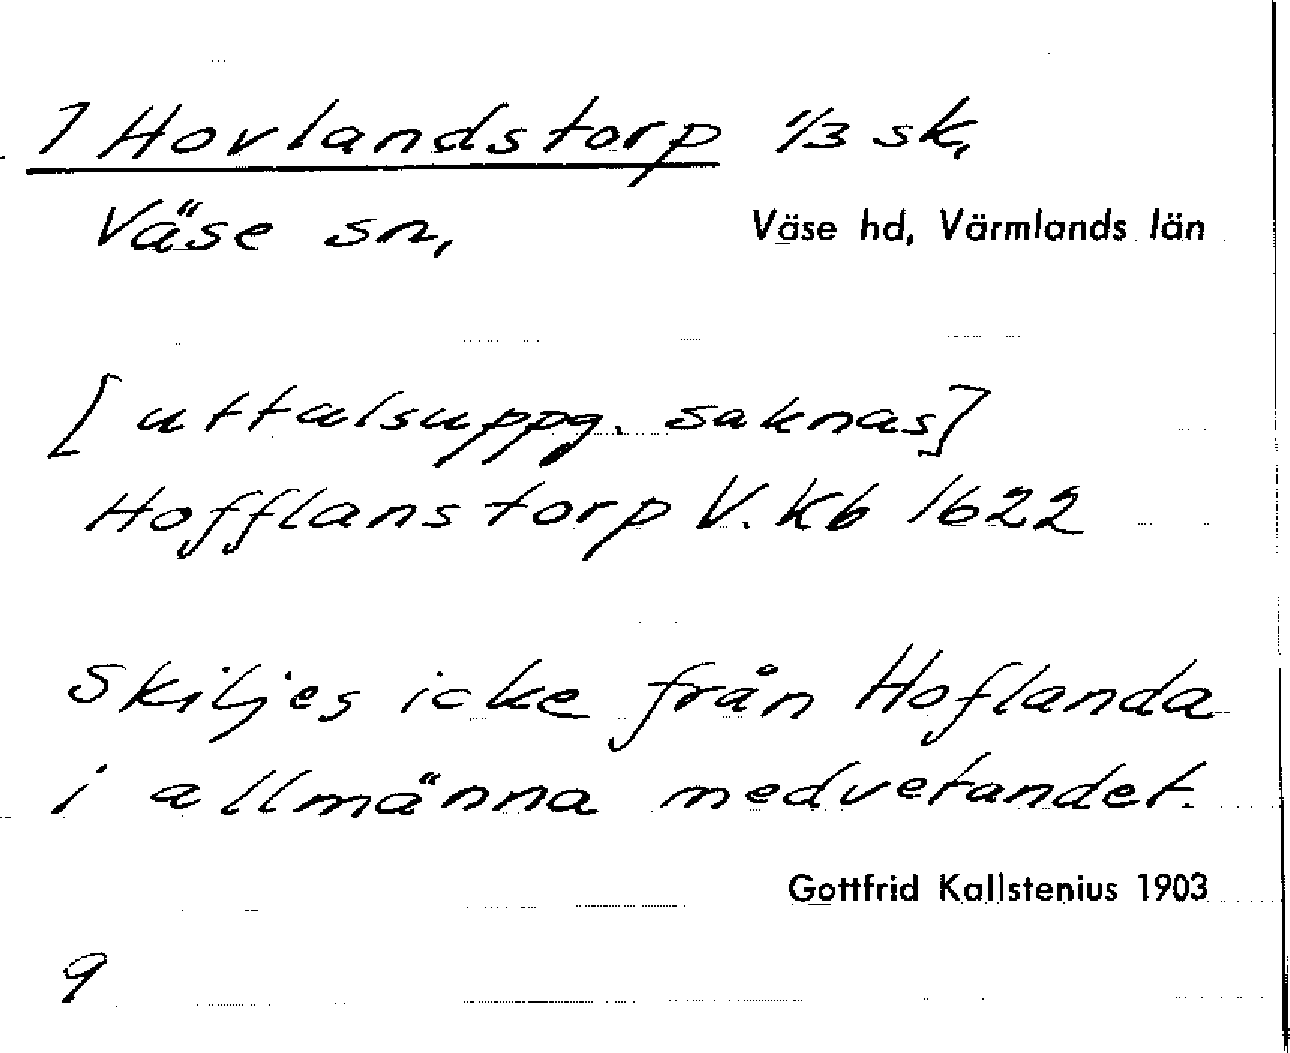 1 Hovlandstorp 1/3 sk,
Väse sn, Väse hd, Värmlands län
[uttalsuppg. saknas]
Hofflanstorp V. Kb 1622
Skiljes icke från Hoflanda
i allmänna medvetandet.
Gottfrid Kallstenius 1903
9